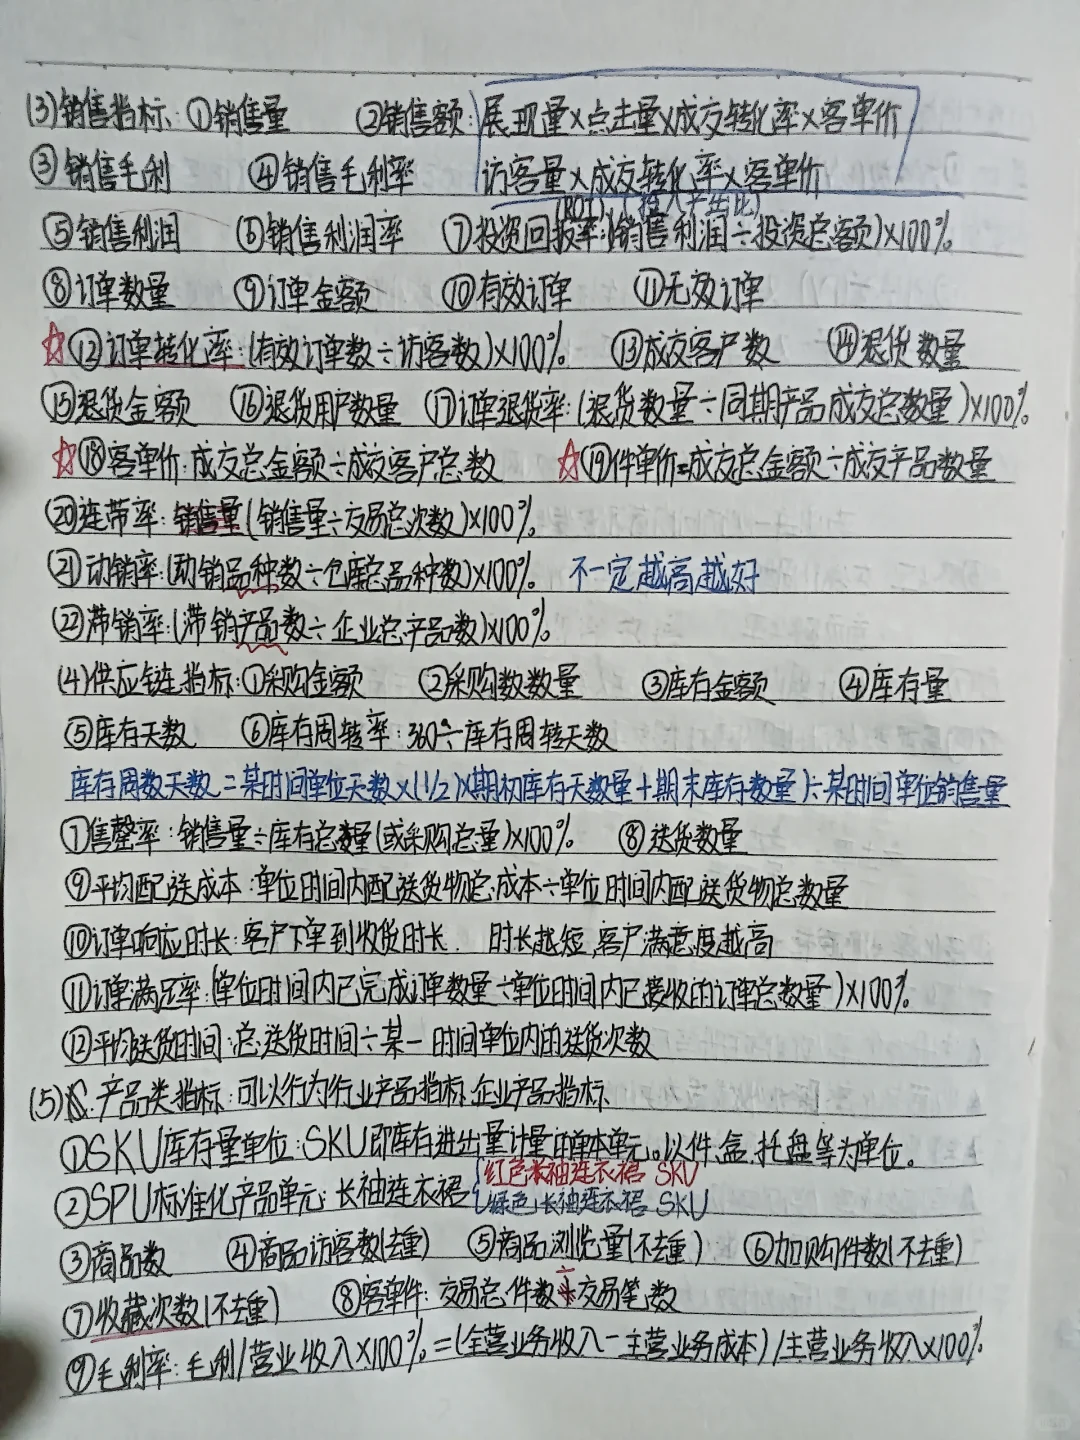 (3)销售指标:①销售量 ②销售额:展现量×点击量×成交转化率×客单价
③销售毛利 ④销售毛利率 访客量×成交转化率×客单价
(ROI) (投入产出比)
⑤销售利润 ⑥销售利润率 ⑦投资回报率:(销售利润÷投资总额)×100%
⑧订单数量 ⑨订单金额 ⑩有效订单 ⑪无效订单
☆⑫订单转化率:(有效订单数÷访客数)×100% ⑬成交客户数 ⑭退货数量
⑮退货金额 ⑯退货用户数量 ⑰订单退货率:(退货数量÷同期产品成交总数量)×100%
☆⑱客单价:成交总金额÷成交客户总数 ☆⑲件单价=成交总金额÷成交产品数量
⑳连带率:销售量(销售量÷交易总次数)×100%
㉑动销率:(动销品种数÷仓库总品种数)×100% 不一定越高越好
㉒滞销率:(滞销产品数÷企业总产品数)×100%
(4)供应链指标:①采购金额 ②采购数数量 ③库存金额 ④库存量
⑤库存天数 ⑥库存周转率:360÷库存周转天数
库存周数天数=某时间单位天数×(1/2)×(期初库存天数量+期末库存数量)÷某时间单位销售量
⑦售罄率:销售量÷库存总数量(或采购总量)×100% ⑧送货数量
⑨平均配送成本:单位时间内配送货物总成本÷单位时间内配送货物总数量
⑩订单响应时长:客户下单到收货时长. 时长越短,客户满意度越高
⑪订单满足率:(单位时间内已完成订单数量÷单位时间内已接收的订单总数量)×100%
⑫平均送货时间:总送货时间÷某一时间单位内的送货次数
(5)产品类指标:可以行为行业产品指标,企业产品指标
①SKU库存量单位:SKU即库存进出量计量的单本单元。以件、盒、托盘等为单位。
红色长袖连衣裙 SKU
②SPU标准化产品单元:长袖连衣裙 绿色长袖连衣裙 SKU
③商品数 ④商品访客数(去重) ⑤商品浏览量(不去重) ⑥加购件数(不去重)
⑦收藏次数(不去重) ⑧客单件:交易总件数÷交易笔数
⑨毛利率:毛利/营业收入×100%=(全营业务收入-主营业务成本)/主营业务收入×100%